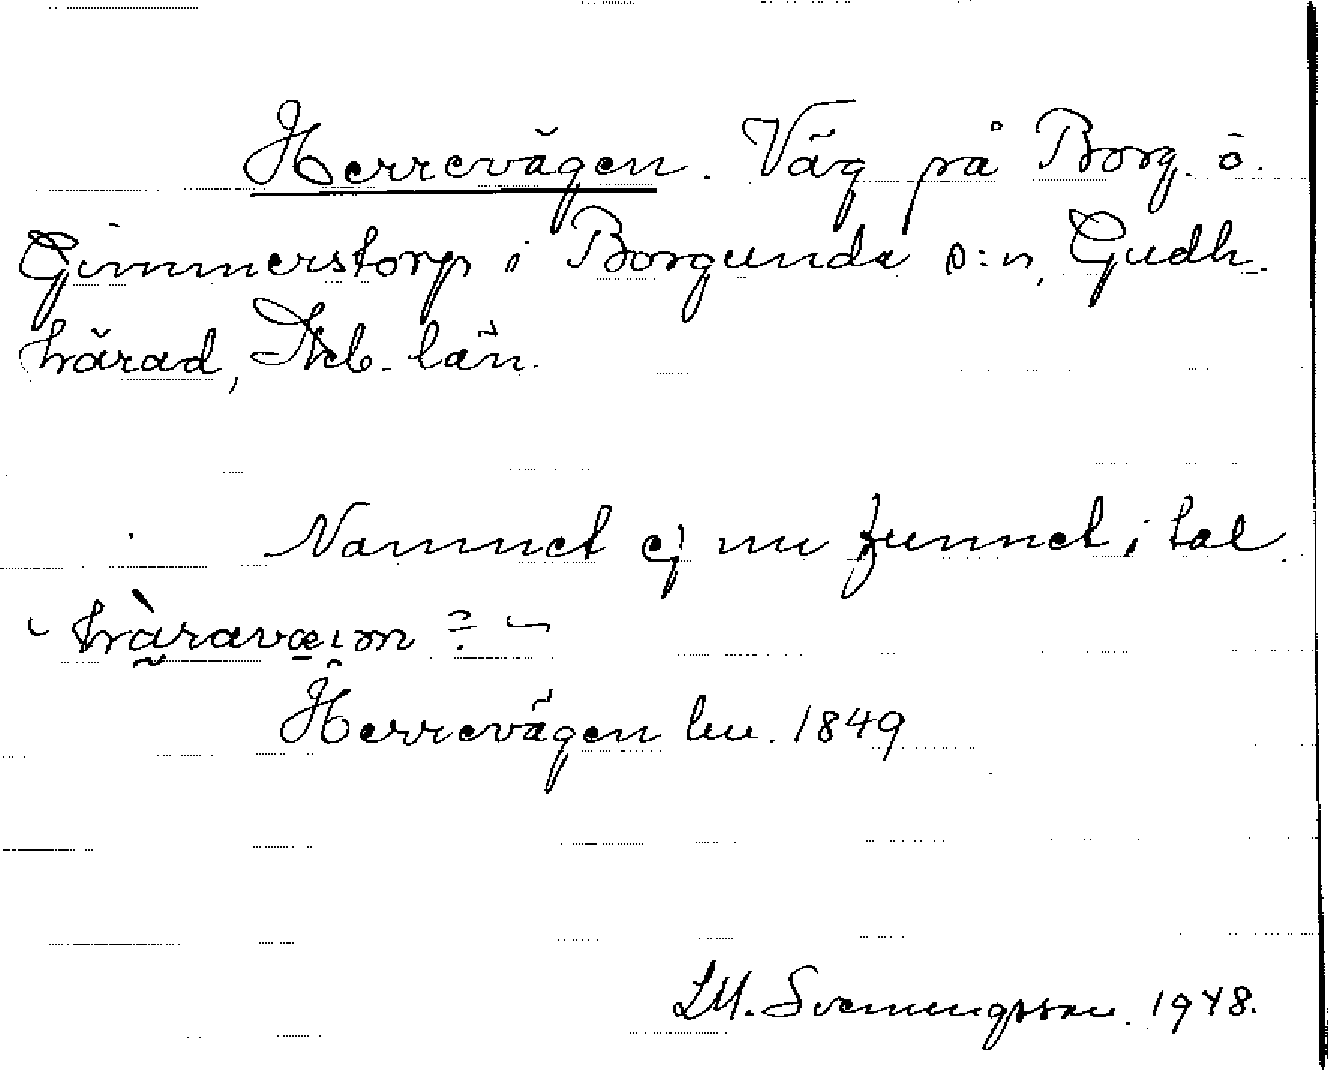 Herrevägen. Väg på Borg. o.
Gimmerstorp i Borgunda s:n, Gudh.
härad, Skb. län.
Namnet ej nu funnet i tal.
Herrevägen lm. 1849
LM. Svenungsson. 1948.